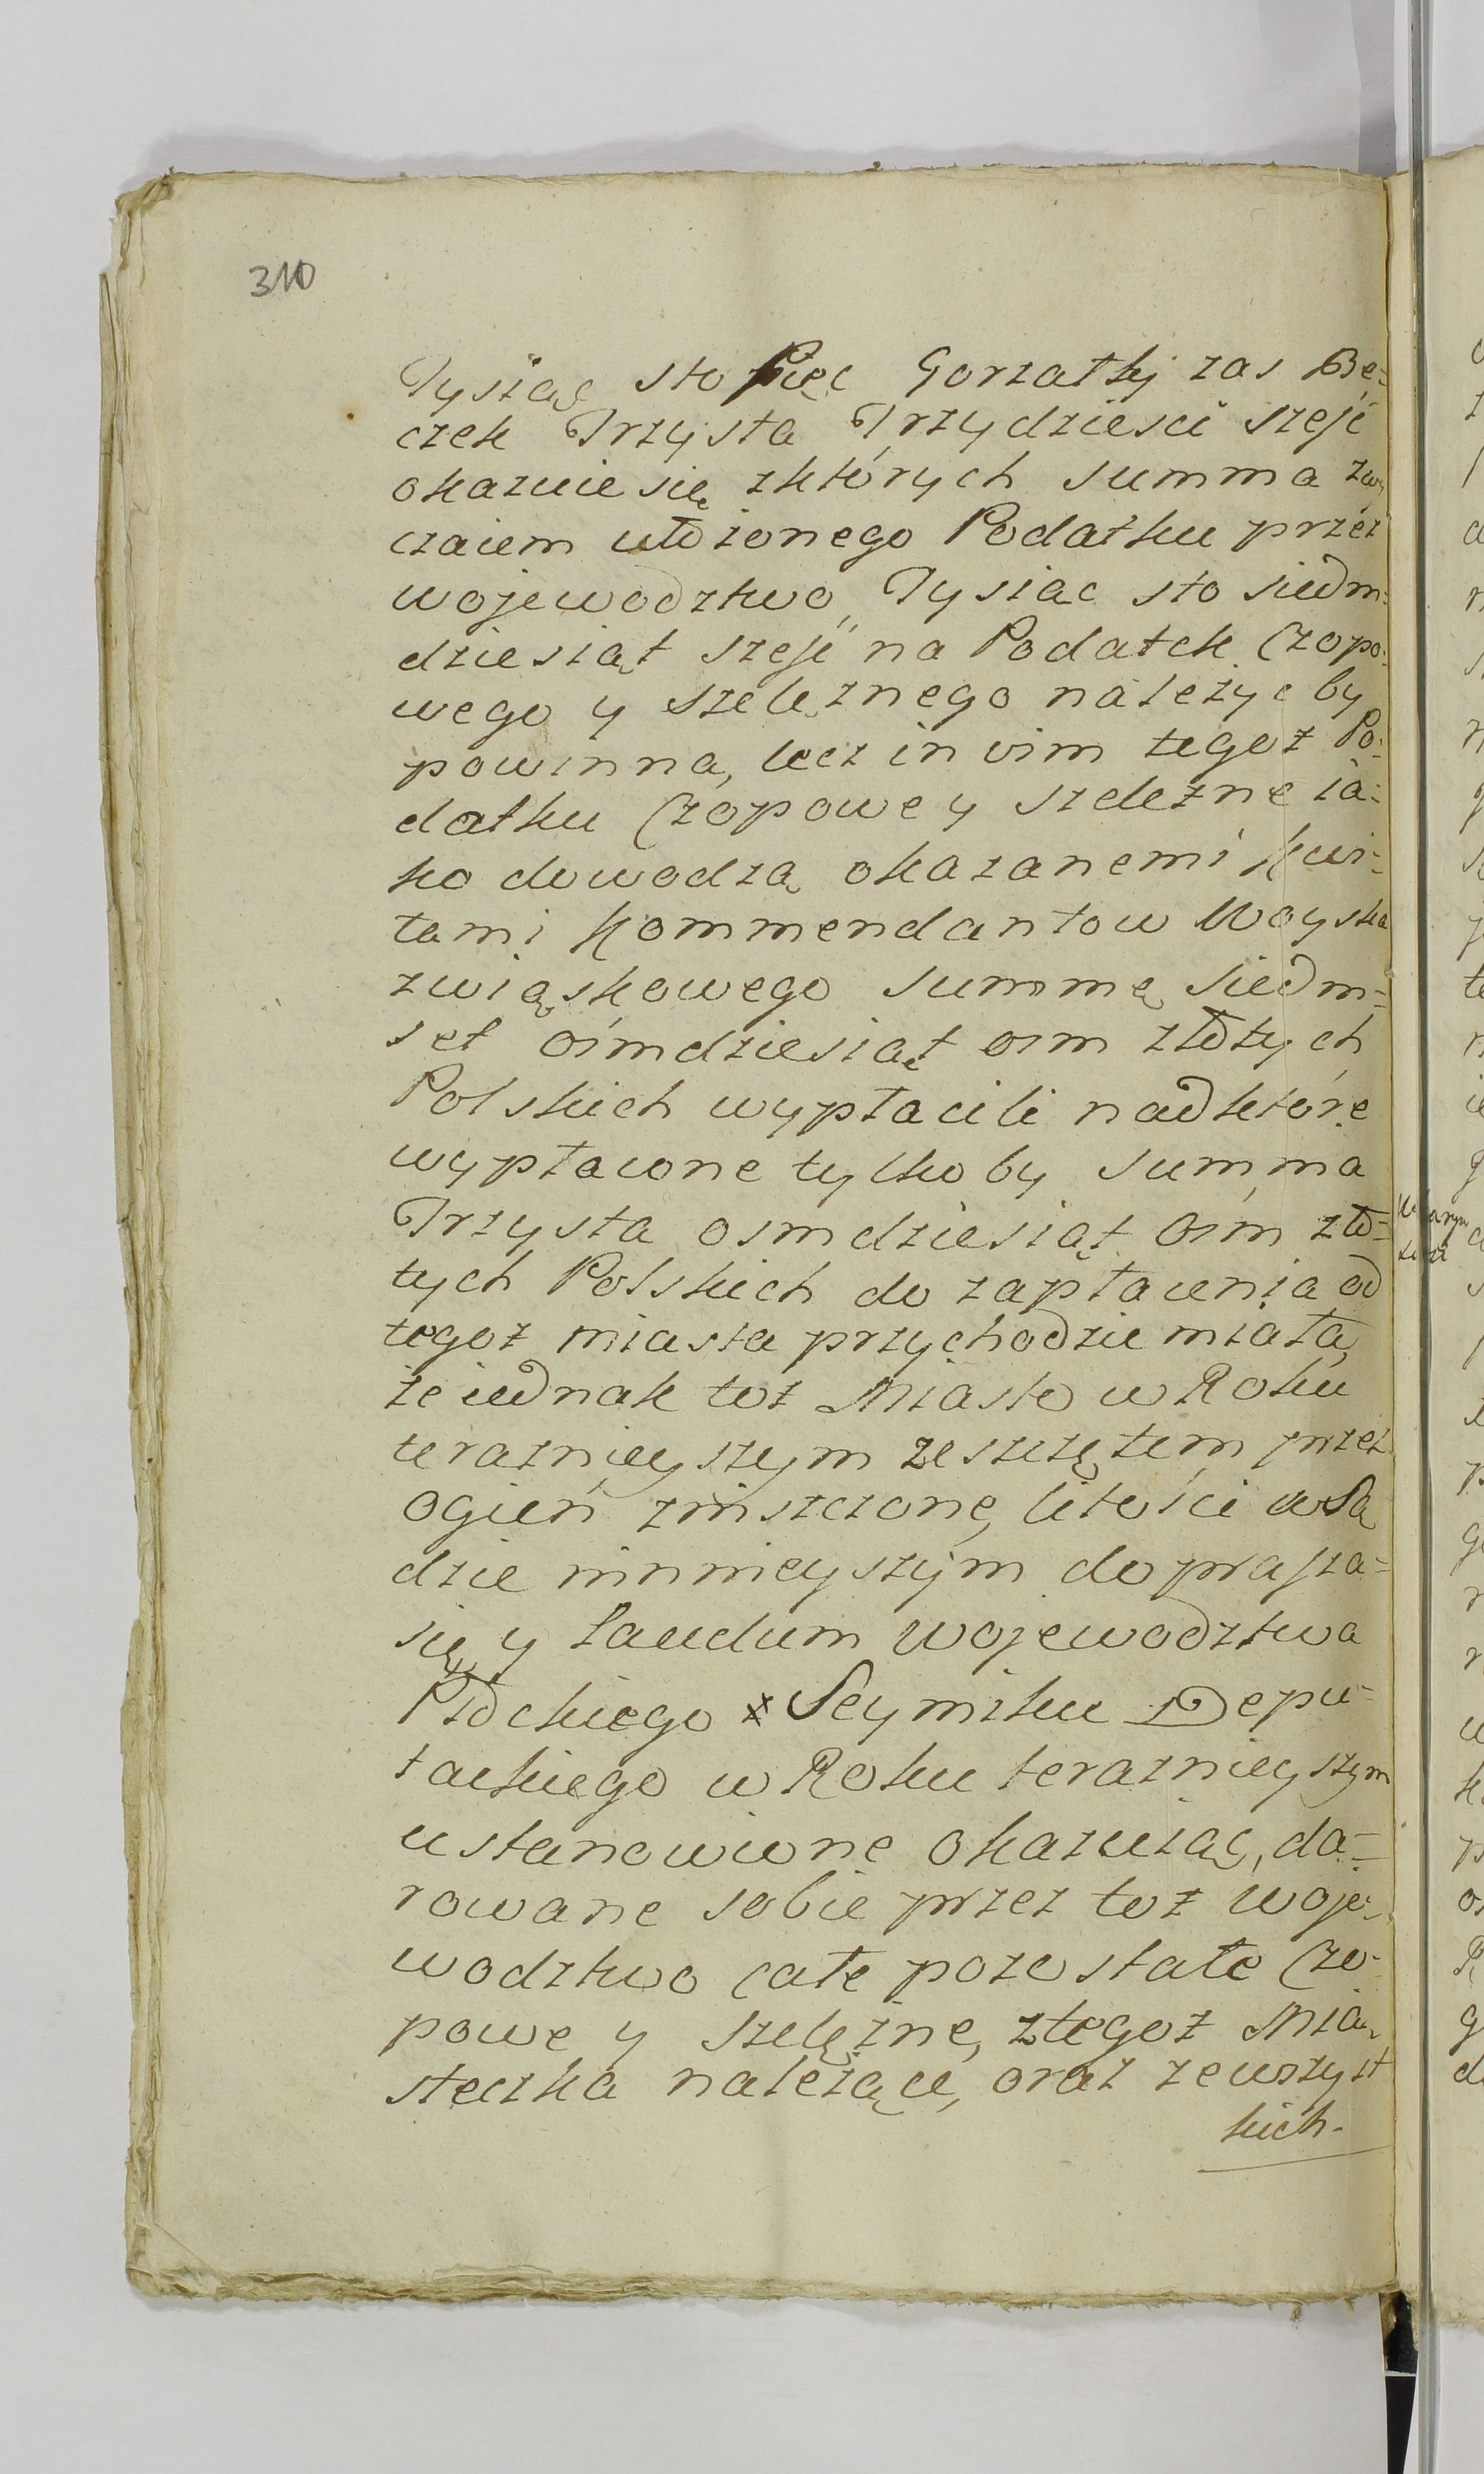 310
Tysiąc sto Pięc Gorzałkj zas Be=
czek Trzysta Trzydziesci szejć
okazuie się zktórych summa zwy
czaiem ułożonego Podatku przez
wojewodztwo, Tysiac sto siedm=
dziesiąt szejć na Podatek Czopo=
wego y szelęznego należyc by
powinna, lecz in vim tegoż Po=
datku Czopowe y szelezne ia=
ko dowodzą okazanemi kwi=
tami Kommendantow Woyska
związkowego summę siedm=
set ośmdziesiąt osm złotych
Polskich wypłacili nadktóre
wypłacone tylko by summa
Trzysta osmdziesiąt osm zło=
tych Polskich do zapłacenia od
tegoż miasta przychodzić miała,
że iednak toż Miasto w Roku
teraznieyszym zeszczętem przez
ogień zniszczone, litości w Są
dzie ninnieyszym doprasza=
się y Laudum wojewodztwa
Płockiego z Seymiku Depu=
tackiego w Roku teraznieyszym
ustanowione okazuiąc, da=
rowane sobie przez toż woje=
wodztwo całe pozostałe Czo=
powe y szelężne, ztegoż Mia=
steczka należące, oraz zewszyst
kich.